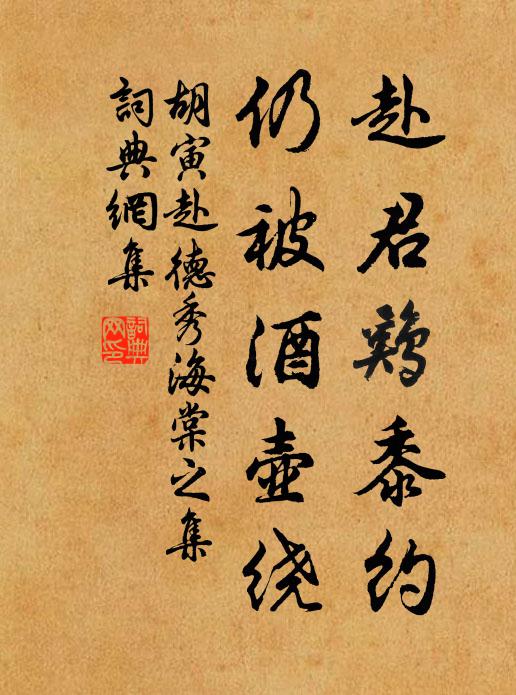 赴君鷄黍約
仍被酒壺绕
胡寅赴德秀海棠之集
詞典網集
詞典